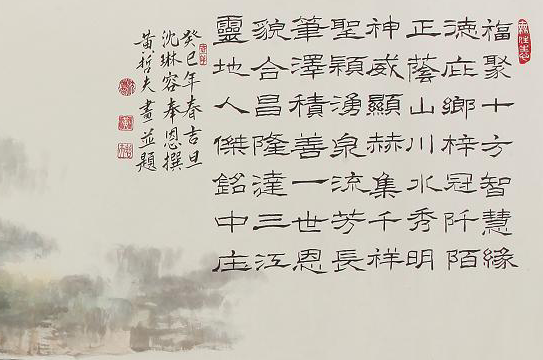 福聚十方智慧緣
德庇鄉梓冠阡陌
正蔭山川水秀明
神威顯赫集千祥
聖穎湧泉流芳長
筆澤積善一世恩
貌合昌隆達三江
靈地人傑銘中庄
癸巳年春吉旦
沈琳容奉恩撰
黃哲夫畫並題